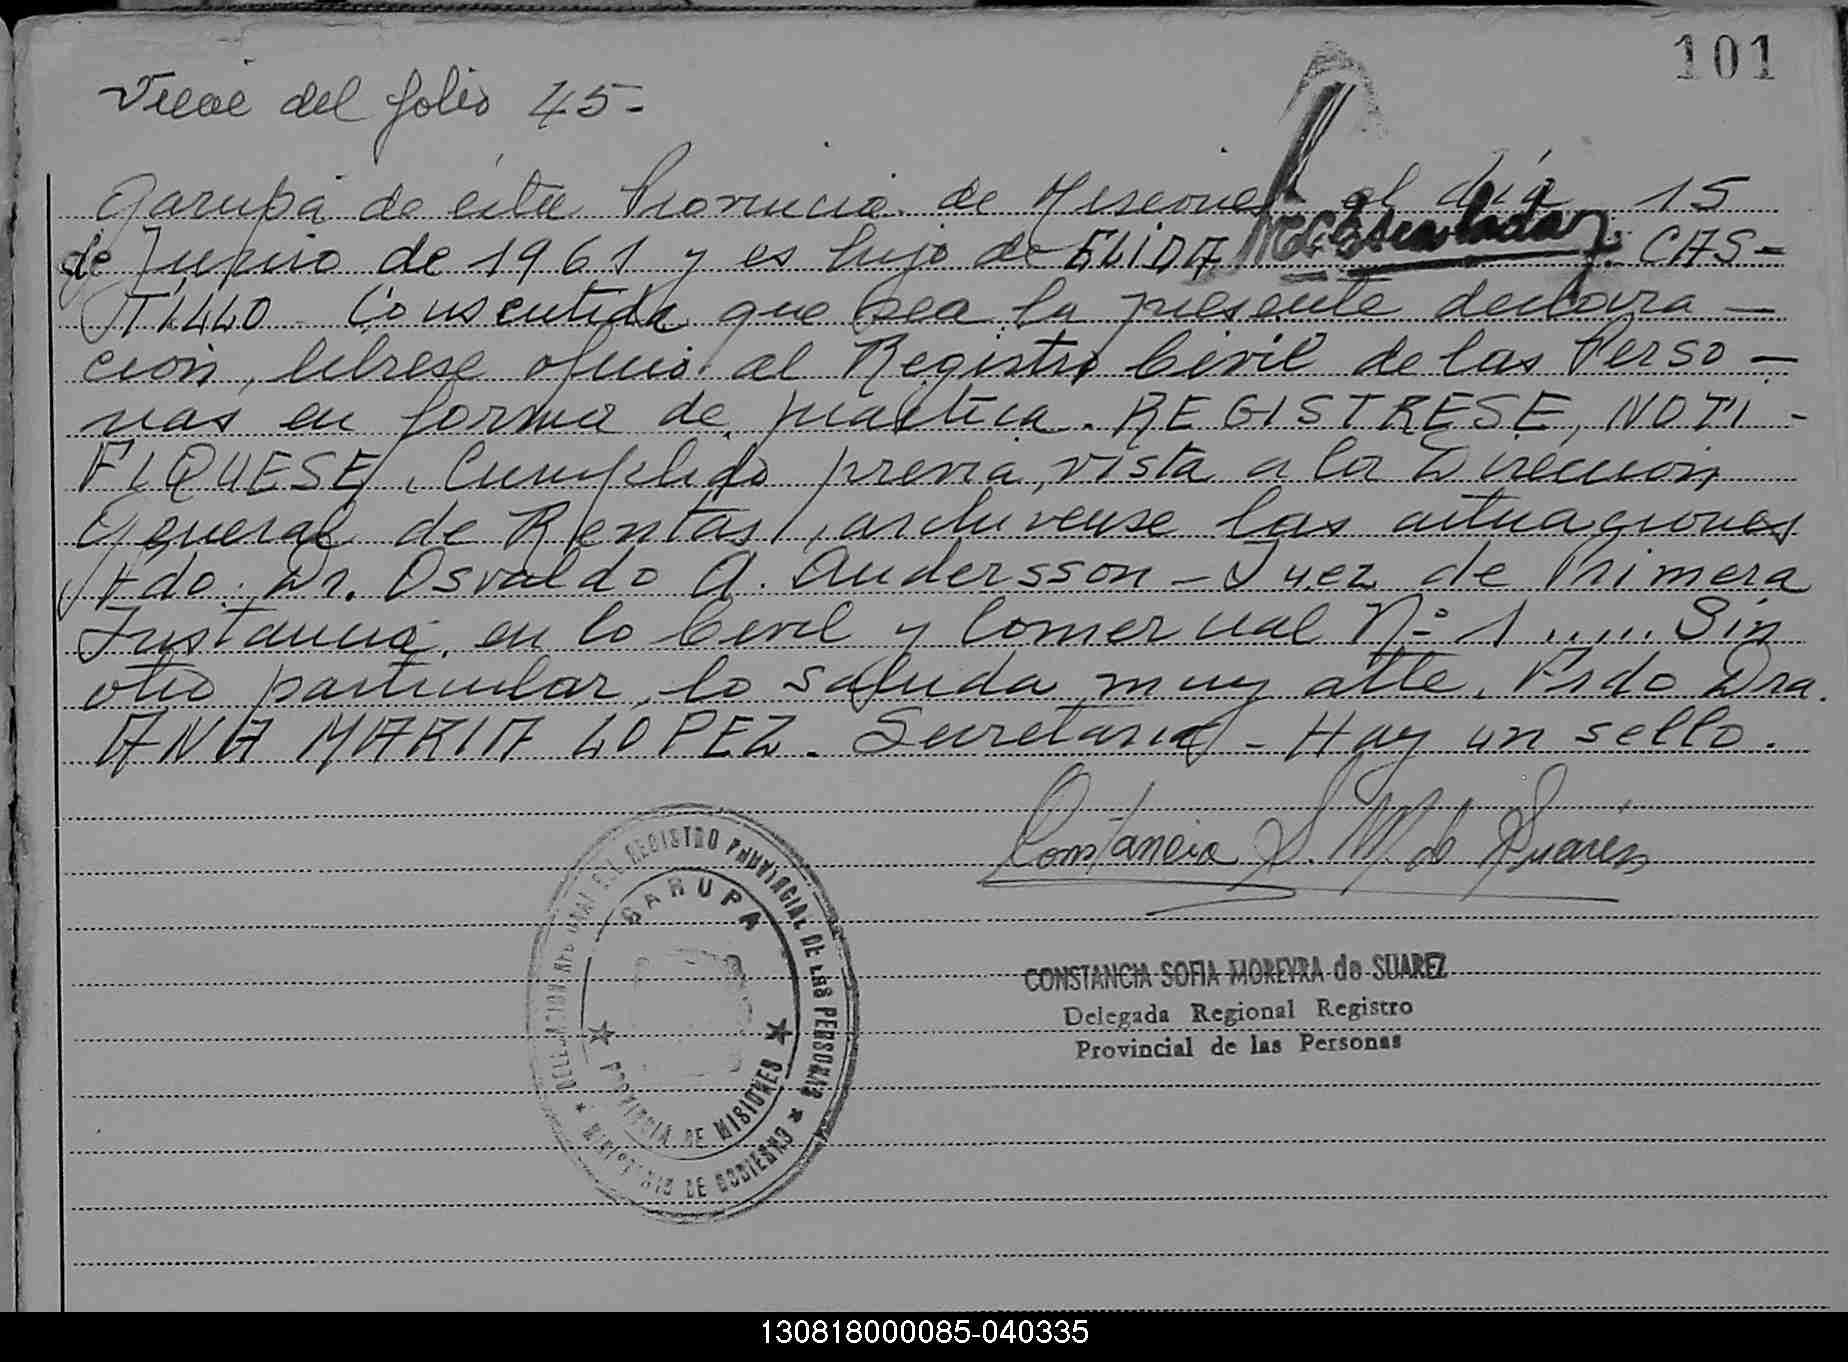 101
Viene del folio 45-
Garupá de ésta Provincia de Misiones el día 15
de Junio de 1961 y es hijo de ELIDA CAS-
TILLO. Consentida que sea la presente declara-
ción, librese oficio al Registro Civil de las Perso-
nas en forma de práctica. REGISTRESE, NOTI-
FIQUESE, Cumplido previa vista a la Dirección
General de Rentas, archivense las actuaciones
Fdo. Dr. Osvaldo A. Andersson - Juez de Primera
Instancia en lo Civil y Comercial Nº 1 ..... Sin
otro particular, lo saluda muy atte. Fdo Dra.
ANA MARIA LOPEZ. Secretaria - Hay un sello.
Constancia S. M. de Suárez
REGISTRO PROVINCIAL DE LAS PERSONAS
GARUPA
PROVINCIA DE MISIONES
MINISTERIO DE GOBIERNO
CONSTANCIA SOFIA MOREYRA de SUAREZ
Delegada Regional Registro
Provincial de las Personas
130818000085-040335